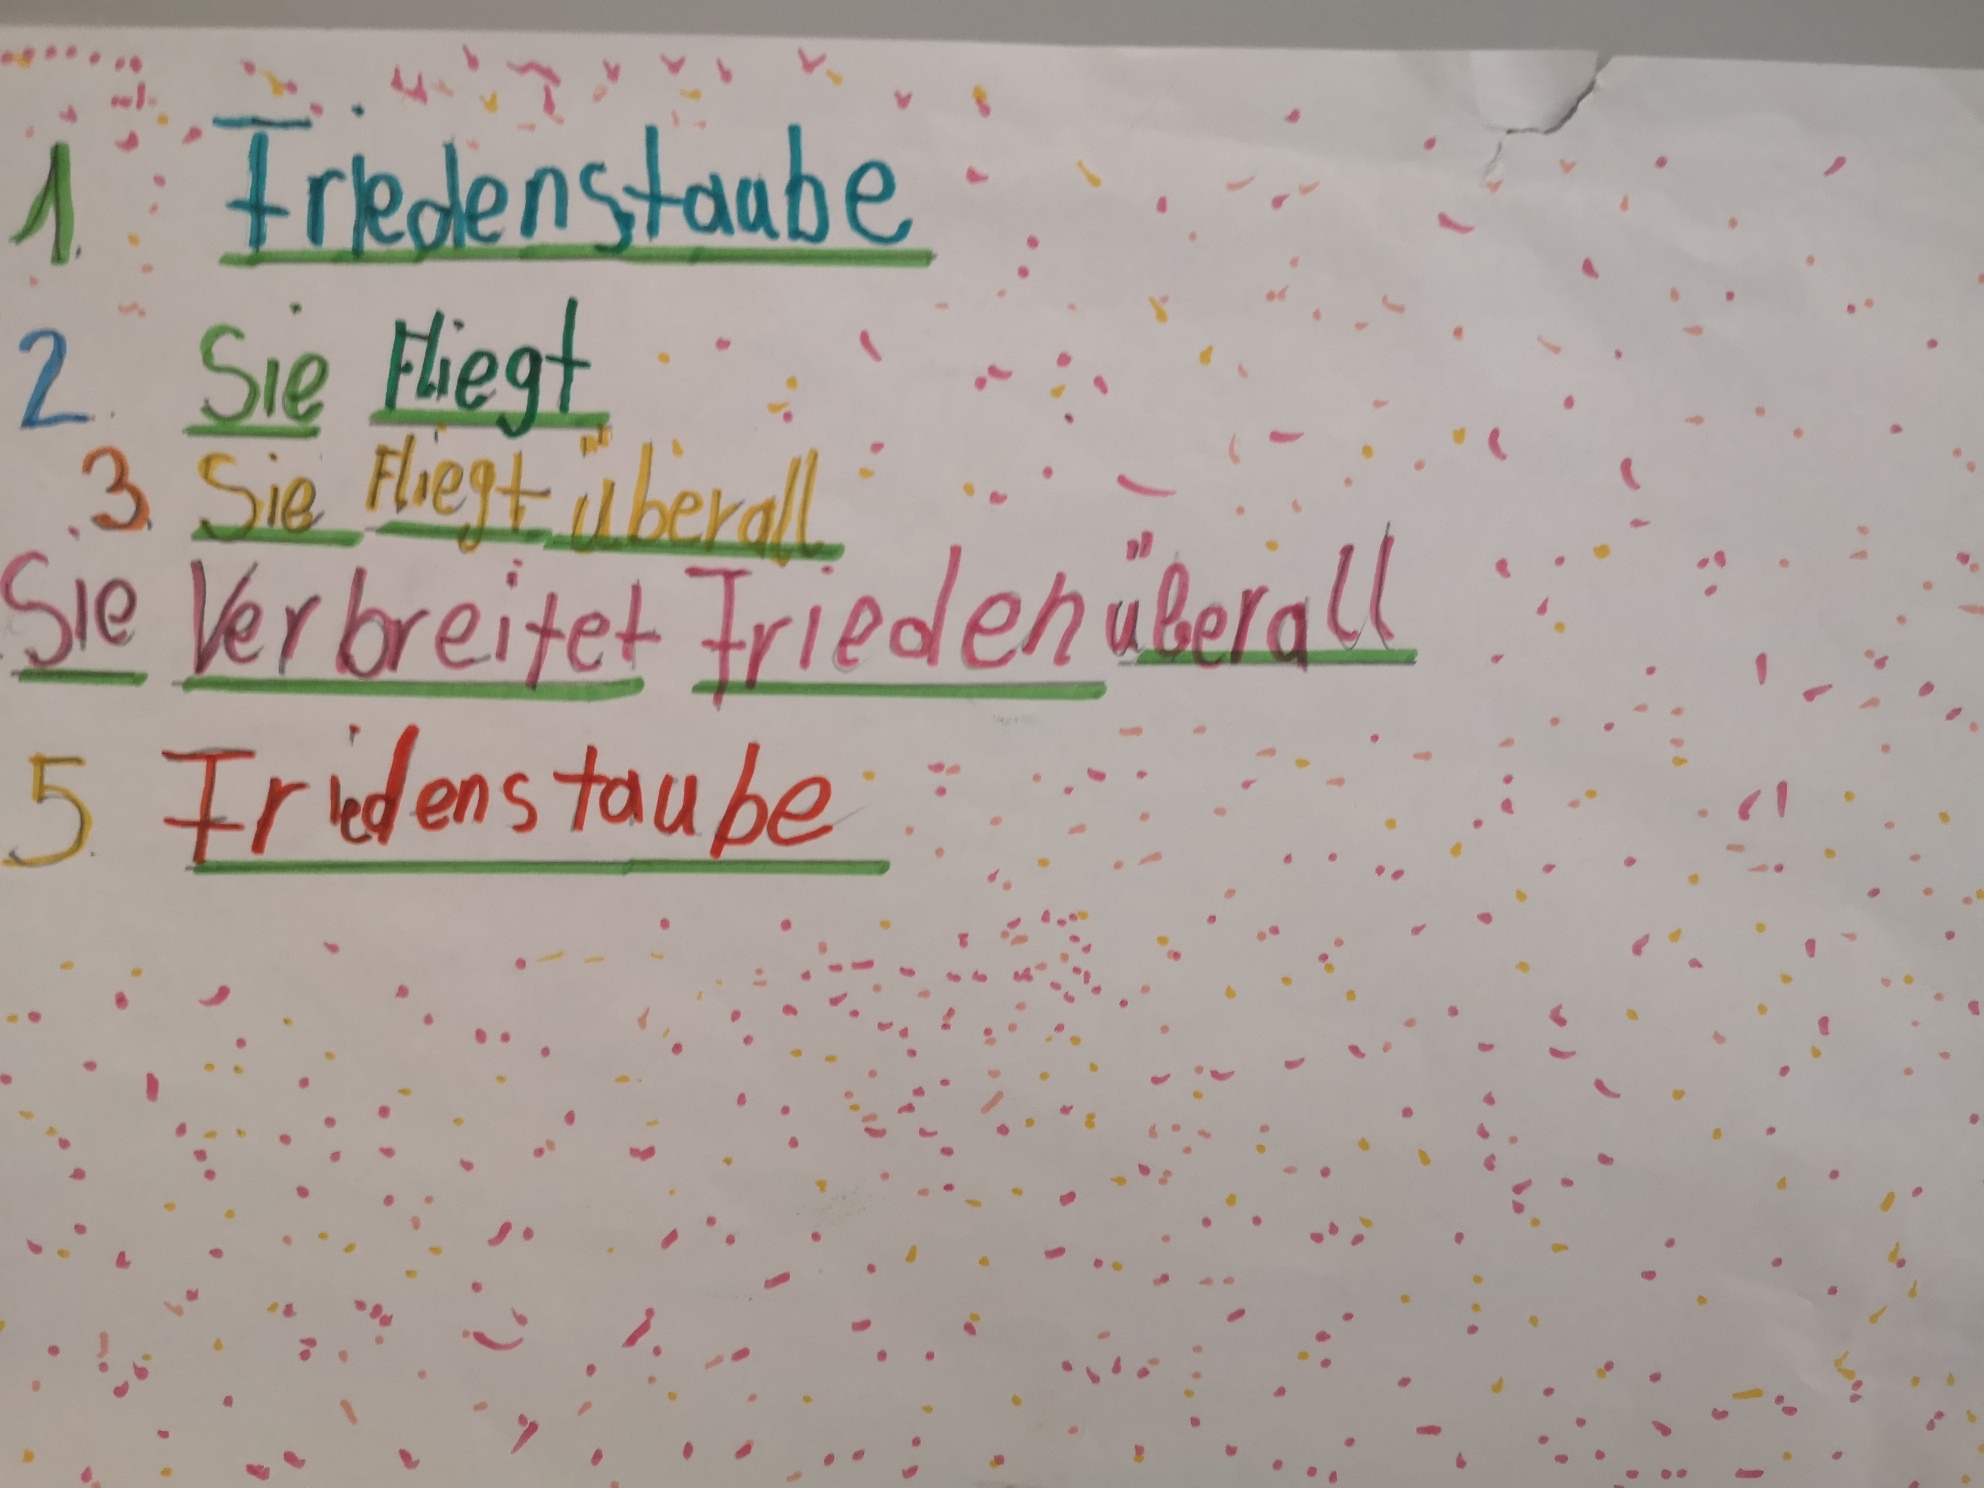 1. Friedenstaube
2. Sie Fliegt
3. Sie Fliegt überall
Sie Verbreitet Frieden überall
5. Friedenstaube